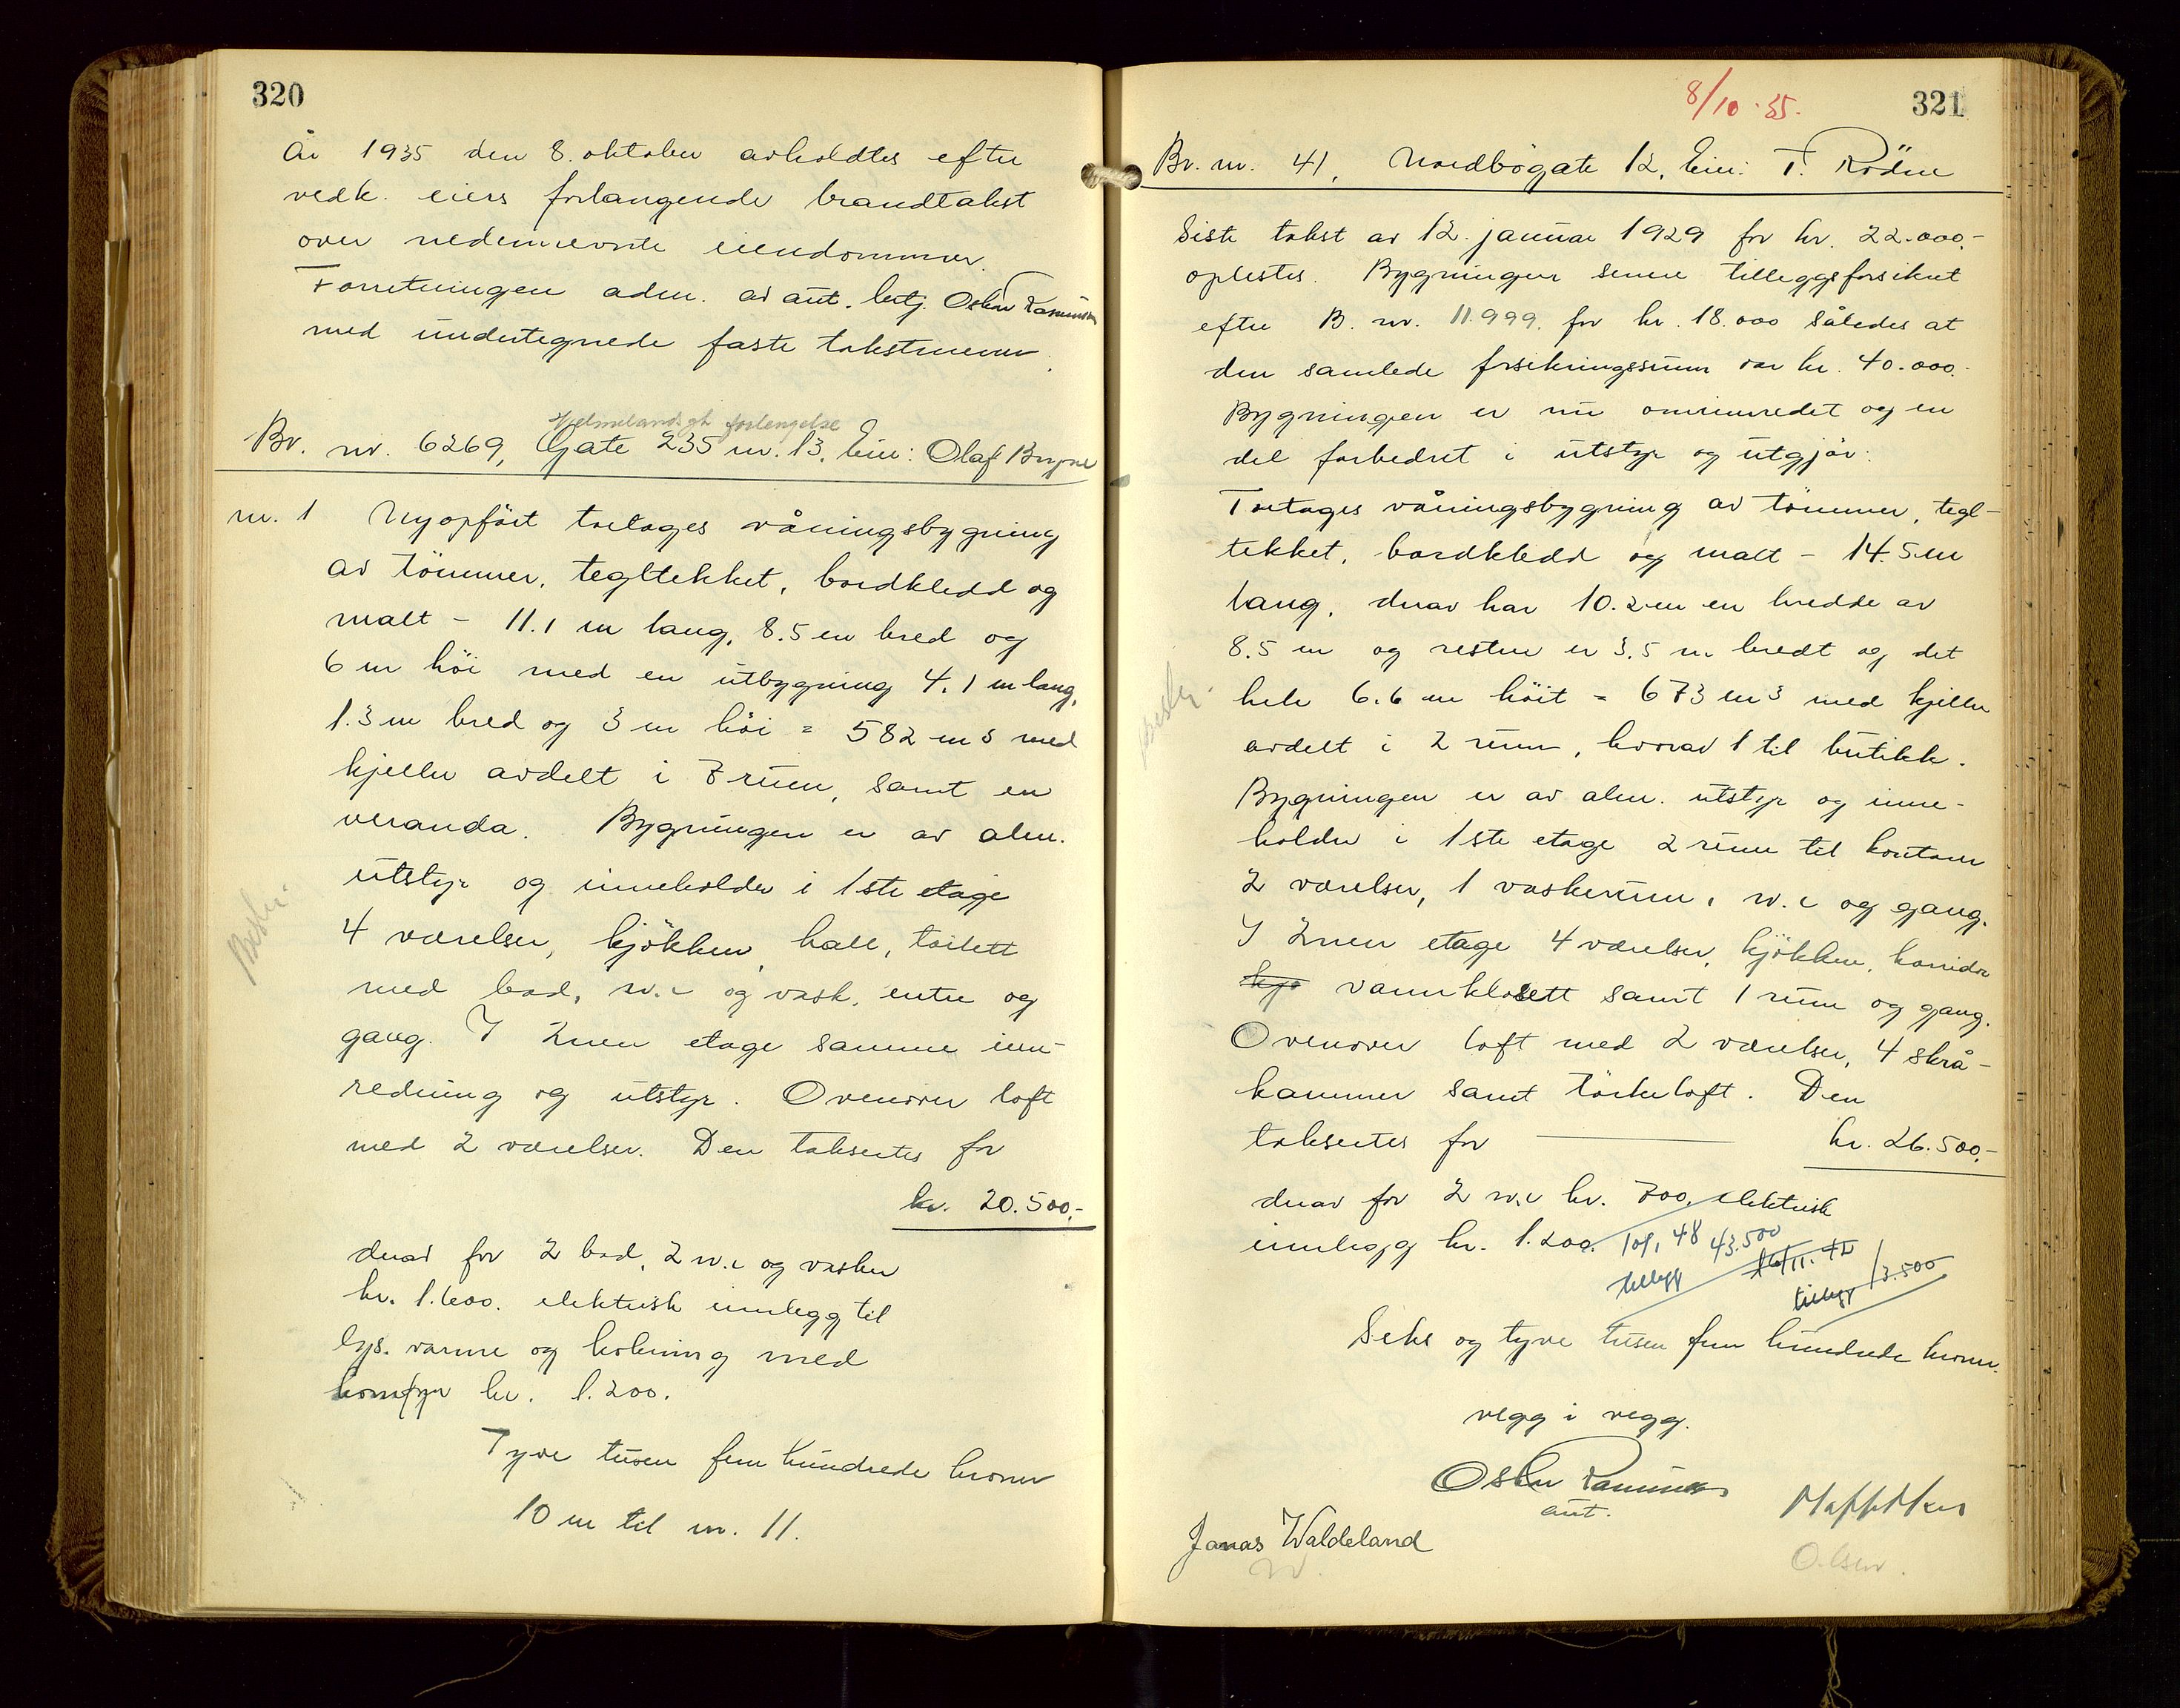 320
År 1935 den 8. oktober avholdtes efter
vedk. eiers forlangende brandtakst
over nedennevnte eiendommer.
Forretningen adm. av aut. betj. Oskar Rasmussen
med undertegnede faste takstmenn.
Hjelmelandsgt forlengelse
Br. nr. 6269, Gate 235 nr. 13. Eier: Olaf Bryne
nr. 1 Nyopført toetages våningsbygning
av tömmer, tegltekket, bordkledd og
malt - 11.1 m lang, 8.5 m bred og
6 m höi med en utbygning 4.1 m lang,
1.3 m bred og 3 m höi = 582 m3 med
kjeller avdelt i 7 rum, samt en
veranda. Bygningen er av alm.
utstyr og inneholder i 1ste etage
4 værelser, kjökken, hall, toilett
med bad, w.c og vask, entre og
gang. I 2nen etage samme inn-
redning og utstyr. Ovenover loft
med 2 værelser. Den taksertes for
kr. 20.500.-
derav for 2 bad, 2 w.c og vasker
kr. 1.600. elektrisk innlegg til
lys. varme og kokning med
komfyr kr. 1.200.
Tyve tusen fem hundrede kroner
10 m til nr. 11.
8/10-35.
321
Br. nr. 41, Nordbögate 12, Eier: T. Rödne
Siste takst av 12. januar 1929 for kr. 22.000.-
oplestes. Bygningen senere tilleggsforsikret
efter B. nr. 11.999. for kr. 18.000 således at
den samlede forsikringssum var kr. 40.000.-
Bygningen er nu ominnredet og en
del forbedret i utstyr og utgjör:
Toetages våningsbygning av tömmer, tegl-
tekket, bordkledd og malt - 14.5 m
lang, derav har 10.2 m en bredde av
8.5 m og resten er 3.5 m bredt og det
hele 6.6 m höit = 673 m3 med kjeller
avdelt i 2 rum, hvorav 1 til butikk.
Bygningen er av alm. utstyr og inne-
holder i 1ste etage 2 rum til kontorer
2 værelser, 1 vaskerum, w.c og gang.
I 2nen etage 4 værelser, kjökken, korridor
kjø vannklosett samt 1 rum og gang.
Ovenover loft med 2 værelser, 4 skrå-
kammer samt törkeloft. Den
taksertes for kr. 26.500.-
derav for 2 w.c kr. 700. elektrisk
innlegg kr. 1.200. 43.500
tillegg
tillegg 13.500
Seks og tyve tusen fem hundrede kroner.
vegg i vegg.
Oskar Rasmussen
aut.
Jonas Waldeland
W.
Olsen.